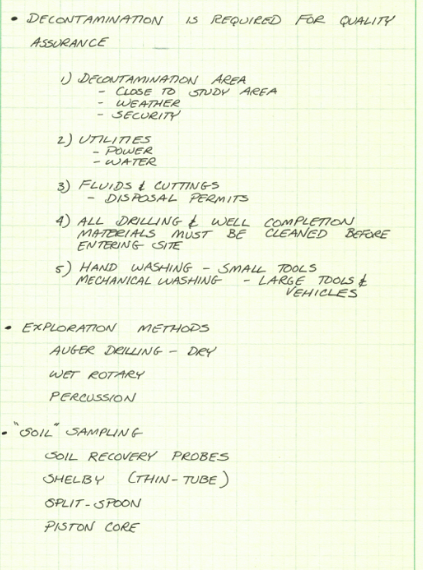 • DECONTAMINATION IS REQUIRED FOR QUALITY
ASSURANCE
1) DECONTAMINATION AREA
- CLOSE TO STUDY AREA
- WEATHER
- SECURITY
2) UTILITIES
- POWER
- WATER
3) FLUIDS & CUTTINGS
- DISPOSAL PERMITS
4) ALL DRILLING & WELL COMPLETION
MATERIALS MUST BE CLEANED BEFORE
ENTERING SITE
5) HAND WASHING - SMALL TOOLS
MECHANICAL WASHING - LARGE TOOLS &
VEHICLES
• EXPLORATION METHODS
AUGER DRILLING - DRY
WET ROTARY
PERCUSSION
• "SOIL" SAMPLING
SOIL RECOVERY PROBES
SHELBY (THIN-TUBE)
SPLIT-SPOON
PISTON CORE